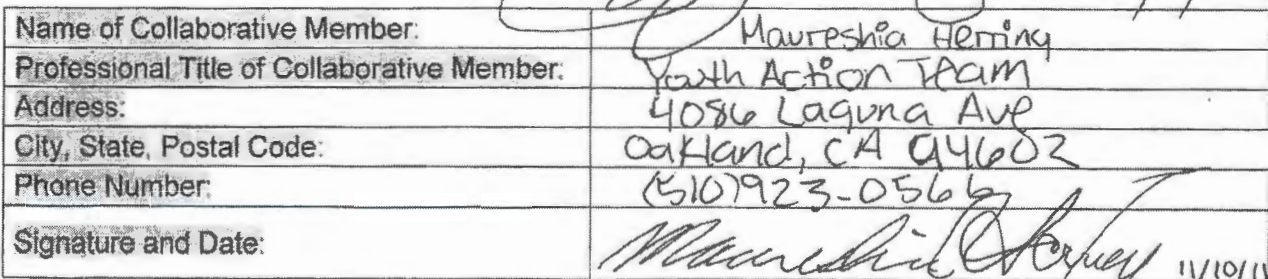 Name of Collaborative Member: Maureshia Herring
Professional Title of Collaborative Member: Youth Action Team
Address: 4086 Laguna Ave
City, State, Postal Code: Oakland, CA 94602
Phone Number: (510)923-0566
Signature and Date: Maureshia Herring 11/10/11